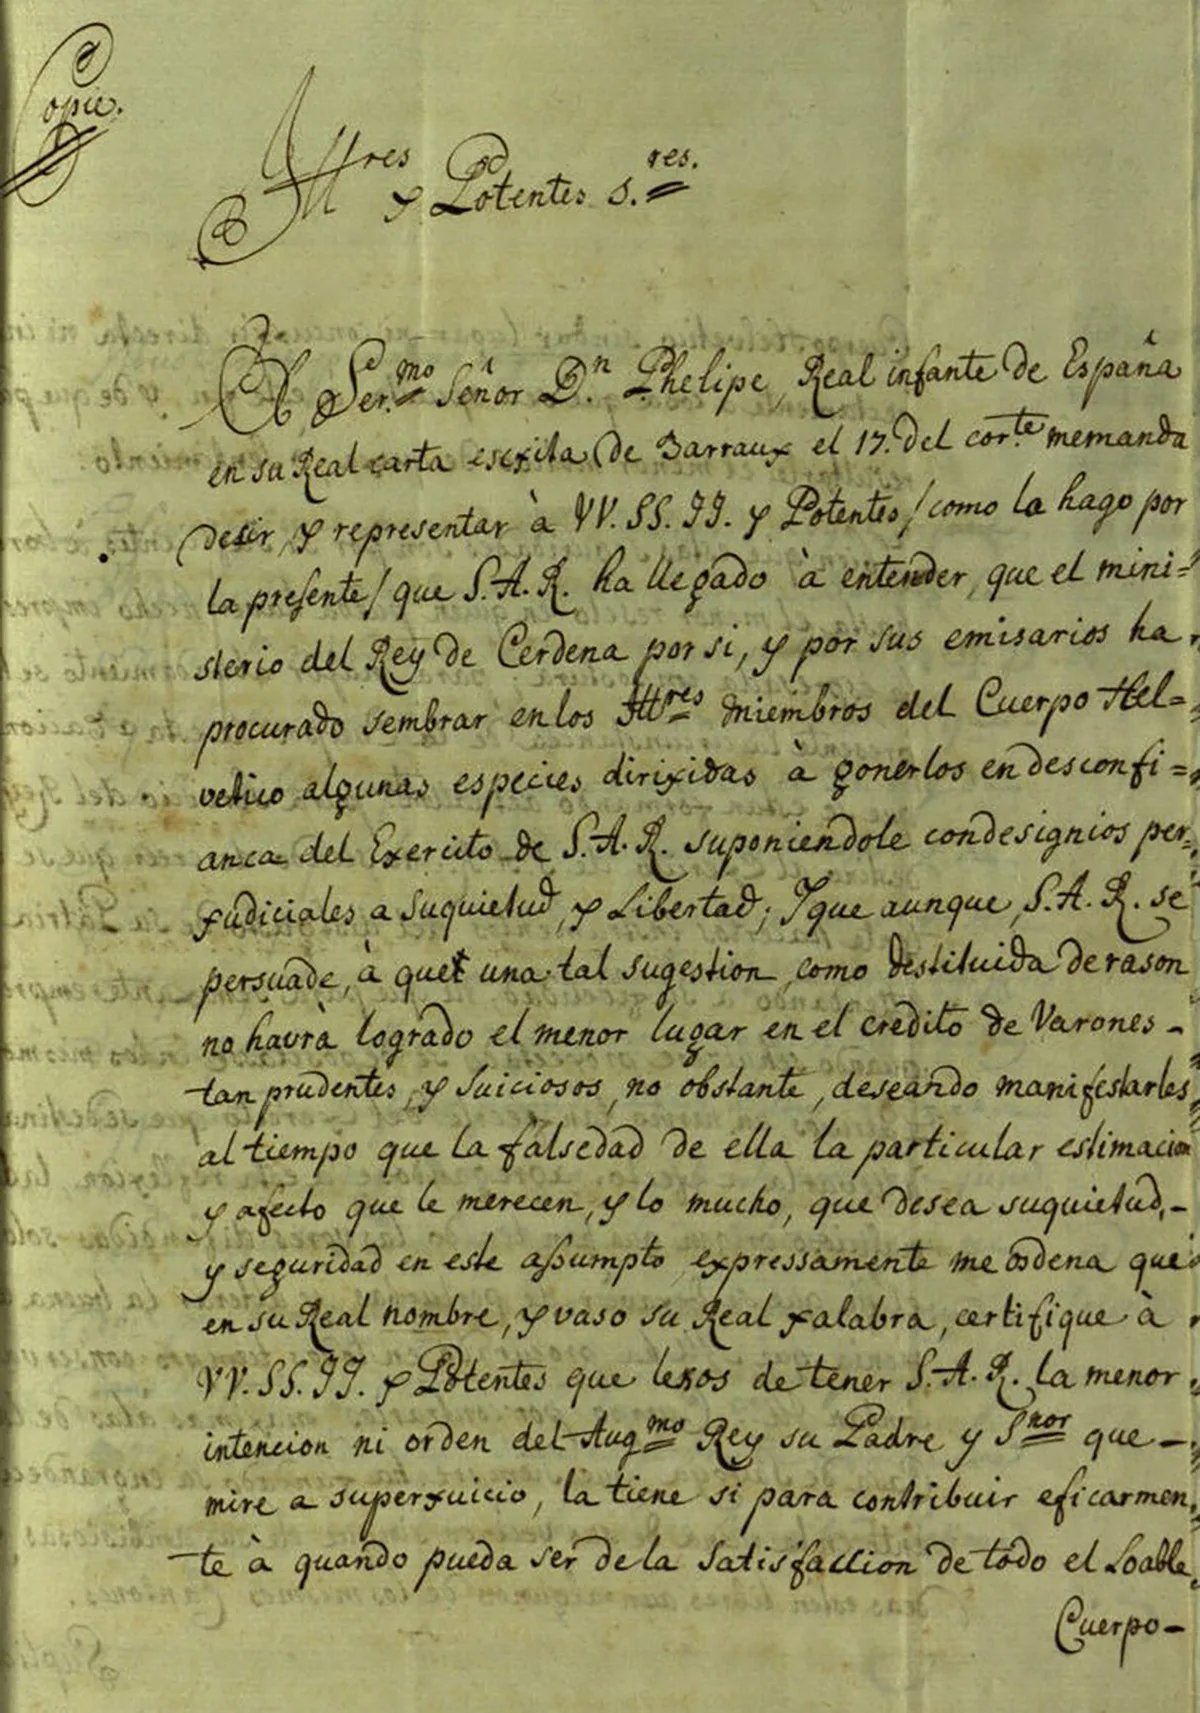 Copie.
Ill.res y Potentes S.res.
El Ser.mo Señor D.n Phelipe, Real infante de España
en su Real carta escrita de Barraux el 17. del cor.te memanda
desir y representar à VV. SS. II. y Potentes / como la hago por
la presente / que S. A. R. ha llegado à entender, que el mini=
sterio del Rey de Cerdena por si, y por sus emisarios ha
procurado sembrar en los Ill.res Miembros del Cuerpo Hel=
vetico algunas especies dirixidas à ponerlos en desconfi=
anca del Exercito de S. A. R. suponiendole con designios per=
judiciales a suquietud, y Libertad; Y que aunque S. A. R. se
persuade, à que una tal sugestion, como destituida de rason
no havrà logrado el menor lugar en el credito de Varones -
tan prudentes, y Juiciosos, no obstante, deseando manifestarles
al tiempo que la falsedad de ella la particular estimacion
y afecto que le merecen, y lo mucho, que desea suquietud, -
y seguridad en este assumpto, expressamente me ordena que
en su Real nombre, y vaso su Real palabra, certifique à
VV. SS. II. y Potentes que lexos de tener S. A. R. la menor
intencion ni orden del Aug.mo Rey su Padre y S.nor que -
mire a superjuicio, la tiene si para contribuir eficarmen
te à quando pueda ser de la satisfaccion de todo el Loable
Cuerpo -